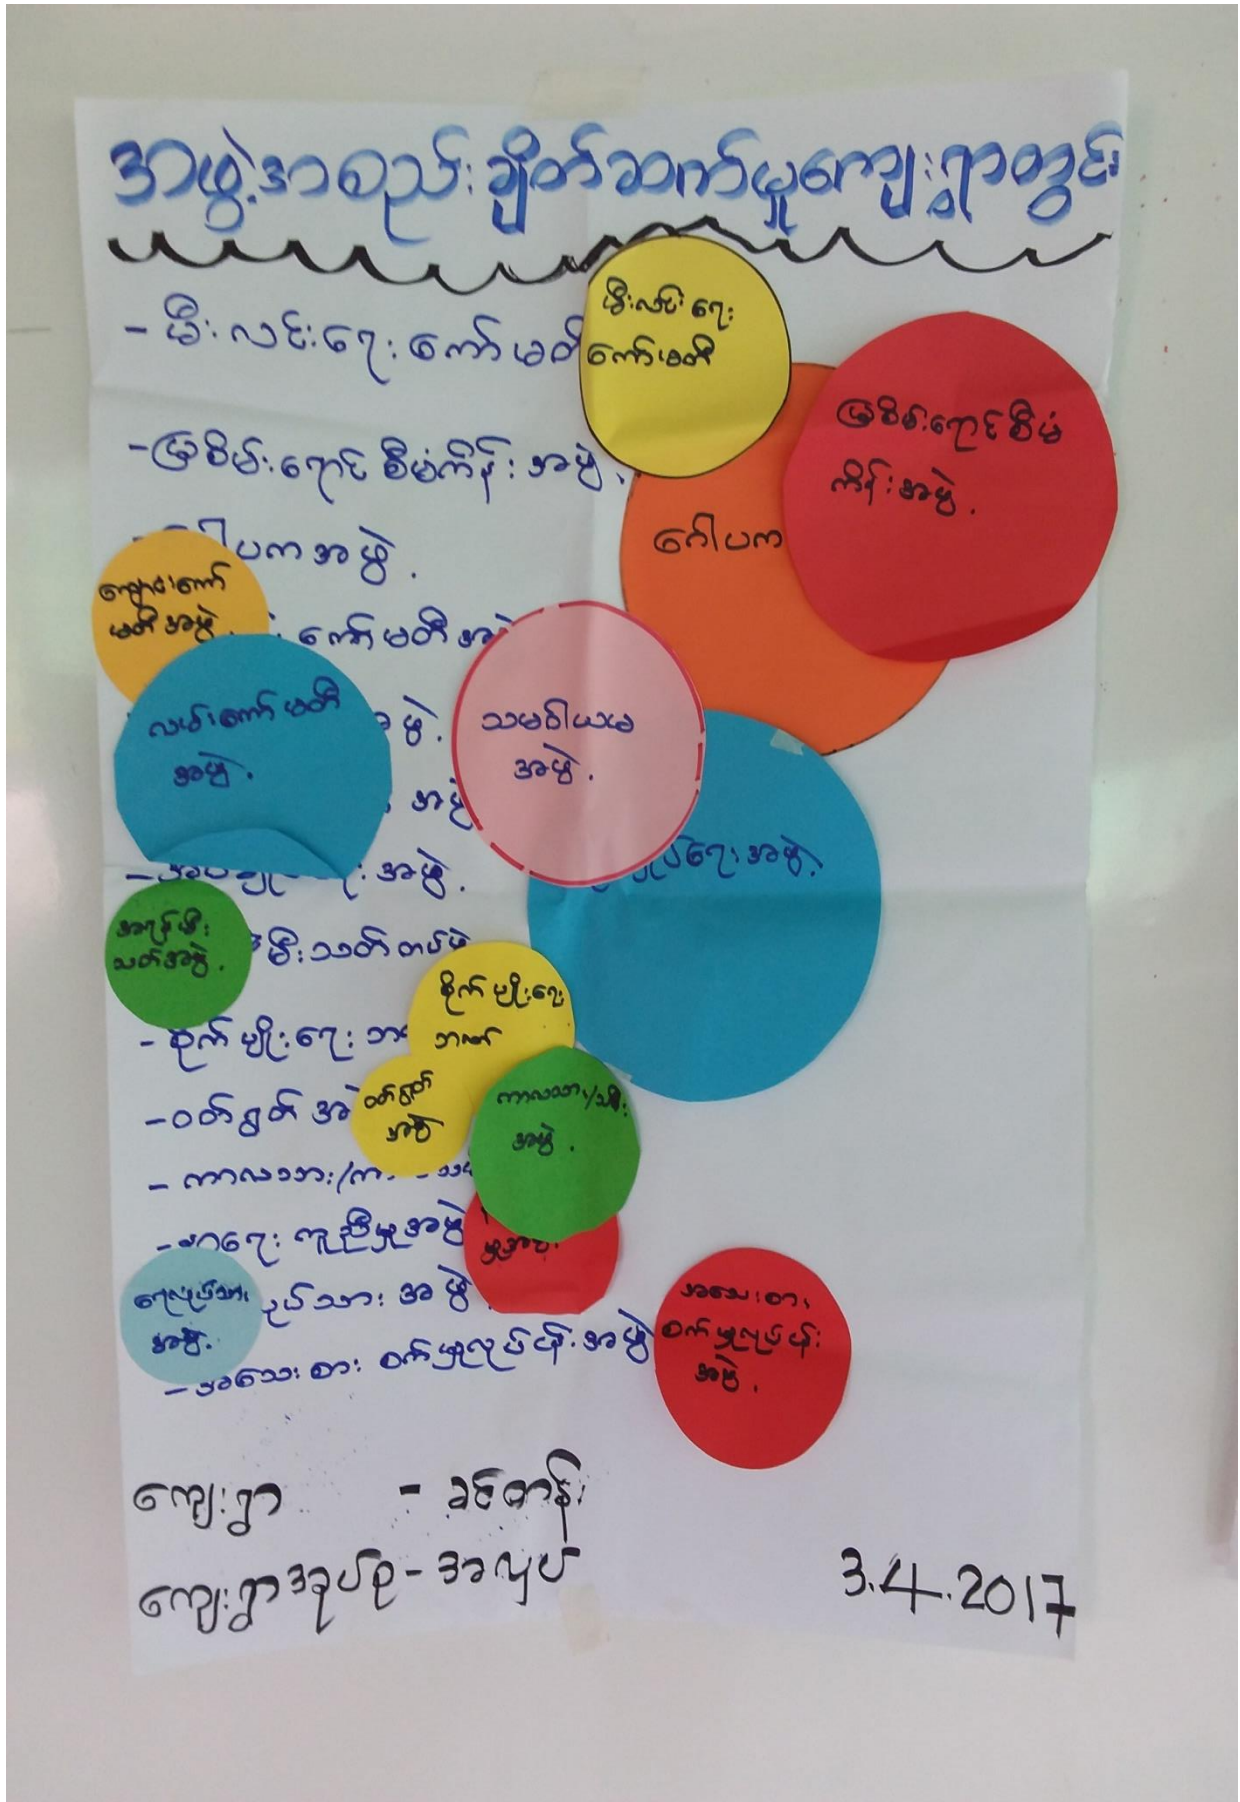 အဖွဲ့အစည်းချိတ်ဆက်မှုကျေးရွာတွင်း
- မီးလင်းရေးကော်မတီ
- မြစိမ်းရောင်စီမံကိန်းအဖွဲ့.
ပကအဖွဲ့.
ကော်မတီအဖွဲ့
ဖွဲ့.
အဖွဲ့
အဖွဲ့.
မီးသတ်တပ်ဖွဲ့
- စိုက်ပျိုးရေး
- ဝတ်ရွတ်
- ကာလသား/
- နာရေးကူညီမှုအဖွဲ့
လုပ်သားအဖွဲ့
- အသေးစားစက်မှုလုပ်ငန်းအဖွဲ့
မီးလင်းရေး
ကော်မတီ
မြစိမ်းရောင်စီမံ
ကိန်းအဖွဲ့.
ဂေါပက
ကျောင်းကော်
မတီအဖွဲ့.
လမ်းကော်မတီ
အဖွဲ့.
သမဝါယမ
အဖွဲ့.
အုပ်ချုပ်ရေးအဖွဲ့.
အရန်မီး
သတ်အဖွဲ့.
စိုက်ပျိုးရေး
ဘဏ်
ဝတ်ရွတ်
အဖွဲ့
ကာလသား/သမီး
အဖွဲ့.
မှုအဖွဲ့.
အဖွဲ့.
အသေးစား
စက်မှုလုပ်ငန်း
အဖွဲ့.
ကျေးရွာ - ခင်တန်း
ကျေးရွာအုပ်စု - အလုပ်
3.4.2017